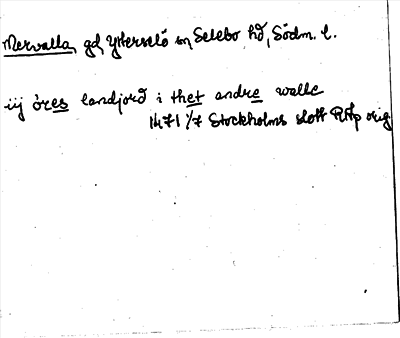 Mervalla, gd, Ytterselö sn, Selebo hd, Södm. l.
iij öres landjord i thet andre walle
1471 1/7 Stockholms slott RAp orig